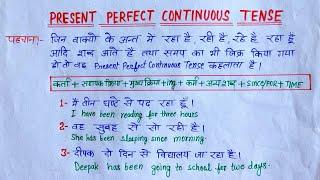 PRESENT PERFECT CONTINUOUS TENSE
पहचान:- जिन वाक्यों के अन्त में रहा है, रही है, रहे है, रहा हूँ
आदि शब्द आते हैं तथा समय का भी जिक्र किया गया
हो तो वह Present Perfect Continuous Tense कहलाता है।
कर्ता + सहायक क्रिया + मुख्य क्रिया + ing + कर्म + अन्य शब्द + SINCE/FOR + TIME
1- मैं तीन घण्टे से पढ़ रहा हूँ।
I have been reading for three hours
2- वह सुबह से सो रही है।
She has been sleeping since morning.
3- दीपक दो दिन से विद्यालय जा रहा है।
Deepak has been going to school for two days.